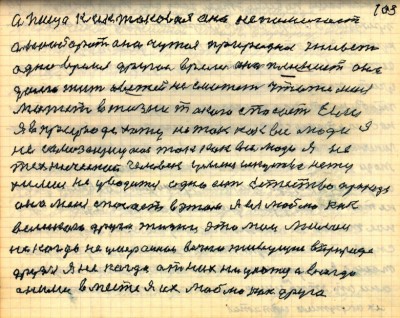 103
а пища как таковая она не помогает
а наоборот она чужая природная живет
одно время другое время она она
долго жить не сможет что же мы
может в жизни такого спасет Если
Я в природе хожу не так как все люди Я
не самозащищаюсь так как все люди Я не
технический человек у меня искусства нету
химии не увожу одно есть Естество природа
она меня спасает в этом Я их люблю как
великого друга жизни это мои милые
никогда не умираемые вечно живущие в природе
друзья Я никогда от них не ухожу а всегда
с ними вместе Я их люблю как друга